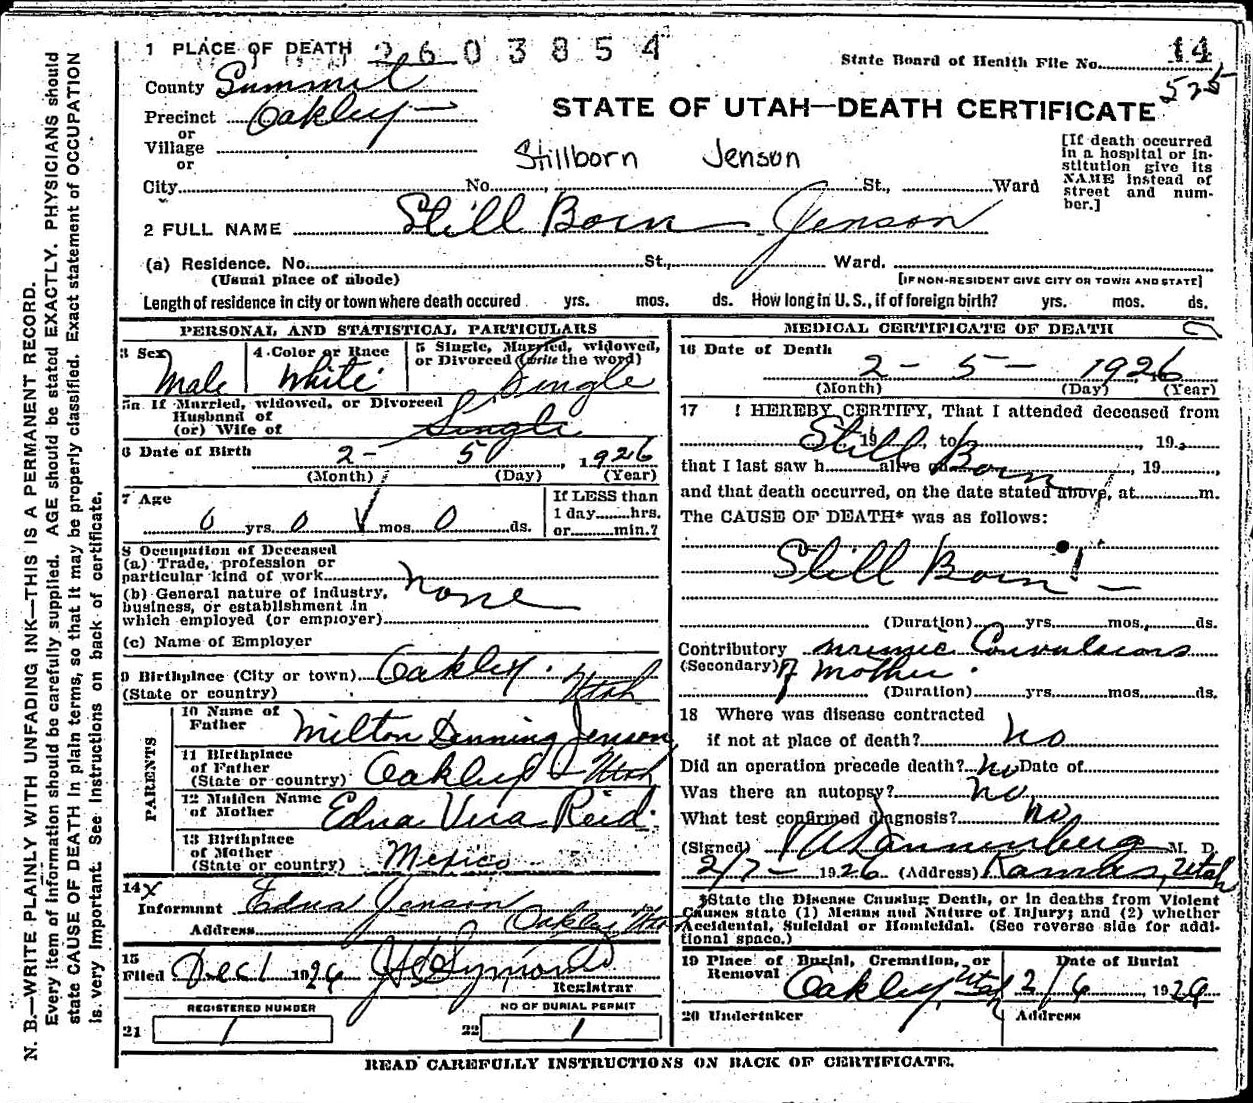 1 PLACE OF DEATH 2603854
State Board of Health File No. 14
525
County Summit
Precinct Oakley
or
Village
or
STATE OF UTAH—DEATH CERTIFICATE
[If death occurred in a hospital or institution give its NAME instead of street and number.]
Stillborn Jenson
City No. St., Ward
2 FULL NAME Still Born Jenson
(a) Residence. No. St., Ward.
(Usual place of abode) [IF NON-RESIDENT GIVE CITY OR TOWN AND STATE]
Length of residence in city or town where death occured yrs. mos. ds. How long in U. S., if of foreign birth? yrs. mos. ds.
PERSONAL AND STATISTICAL PARTICULARS
3 Sex Male
4 Color or Race White
5 Single, Married, widowed, or Divorced (write the word) Single
5a If Married, widowed, or Divorced
Husband of
(or) Wife of Single
6 Date of Birth 2- 5 1926
(Month) (Day) (Year)
7 Age If LESS than
0 yrs. 0 mos. 0 ds. 1 day hrs.
or min.?
8 Occupation of Deceased
(a) Trade, profession or
particular kind of work none
(b) General nature of industry,
business, or establishment in
which employed (or employer)
(c) Name of Employer
9 Birthplace (City or town) Oakley.
(State or country) Utah
PARENTS
10 Name of
Father Milton Denning Jenson
11 Birthplace
of Father
(State or country) Oakley Utah
12 Maiden Name
of Mother Edna Vera Reid.
13 Birthplace
of Mother
(State or country) Mexico
14 X
Informant Edna Jenson
Address Oakley Utah
15
Filed Dec 1 1926 Symons
Registrar
REGISTERED NUMBER NO OF BURIAL PERMIT
21 1 22 1
MEDICAL CERTIFICATE OF DEATH
16 Date of Death
2 - 5 - 1926
(Month) (Day) (Year)
17 I HEREBY CERTIFY, That I attended deceased from
Still 19 to 19
that I last saw h alive on Born, 19
and that death occurred, on the date stated above, at m.
The CAUSE OF DEATH* was as follows:
Still Born! —
(Duration) yrs. mos. ds.
Contributory uremic Convulsions
(Secondary) of mother.
(Duration) yrs. mos. ds.
18 Where was disease contracted
if not at place of death? no
Did an operation precede death? no Date of
Was there an autopsy? no
What test confirmed diagnosis? no
(Signed) Dannenberg M. D.
2/7 - 1926 (Address) Kamas, Utah
*State the Disease Causing Death, or in deaths from Violent
Causes state (1) Means and Nature of Injury; and (2) whether
Accidental, Suicidal or Homicidal. (See reverse side for addi-
tional space.)
19 Place of Burial, Cremation, or
Removal Oakley, Utah
Date of Burial
2/6 1926
20 Undertaker Address
READ CAREFULLY INSTRUCTIONS ON BACK OF CERTIFICATE.
N. B.—WRITE PLAINLY WITH UNFADING INK—THIS IS A PERMANENT RECORD.
Every item of information should be carefully supplied. AGE should be stated EXACTLY. PHYSICIANS should
state CAUSE OF DEATH in plain terms, so that it may be properly classified. Exact statement of OCCUPATION
is very important. See instructions on back of certificate.